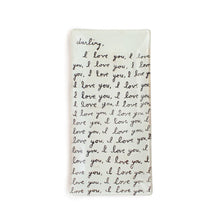 darling,
I love you, I love
you, I love you, I love
you, I love you, I love
you, I love you, I love
I love you, I love you,
I love you, I love you,
I love you, I love you, I
love you, I love you, I
love you, I love you, I
love you, I love you, I
love you, I love you, I
love you, I love you, I